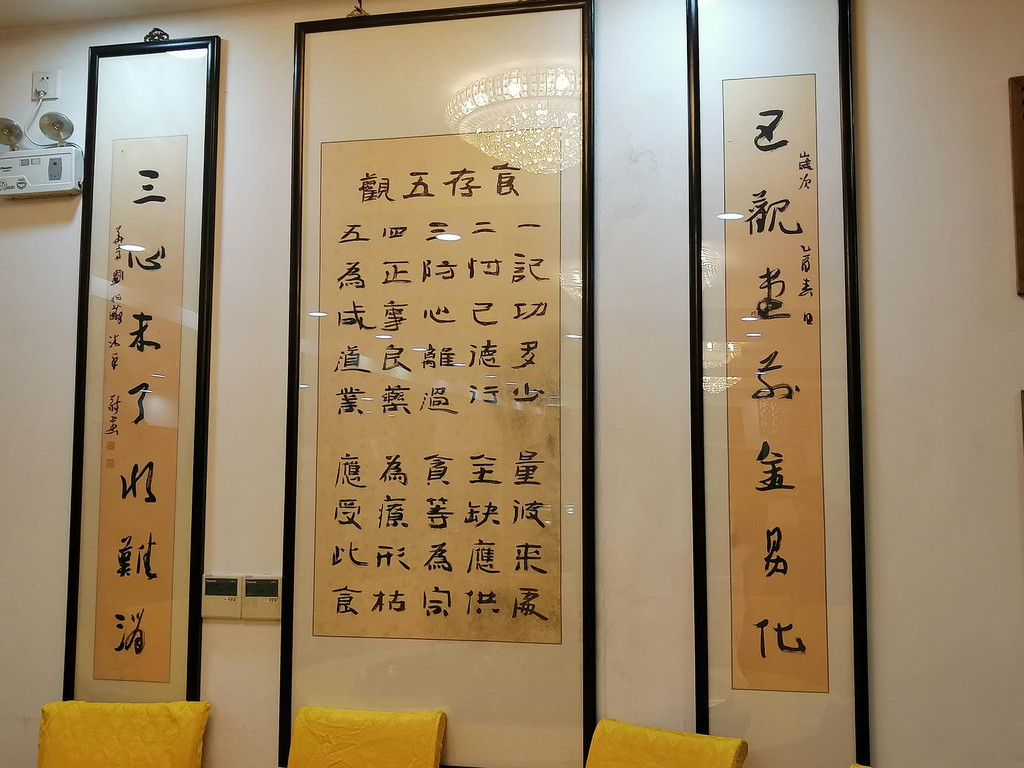 五觀金易化
歲次
乙酉春日
食存五觀
一記功多少 量彼來處
二忖己德行 全缺應供
三防心離過 貪等為宗
四正事良藥 為療形枯
五為成道業 應受此食
三心未了水難消
劉沐手敬書